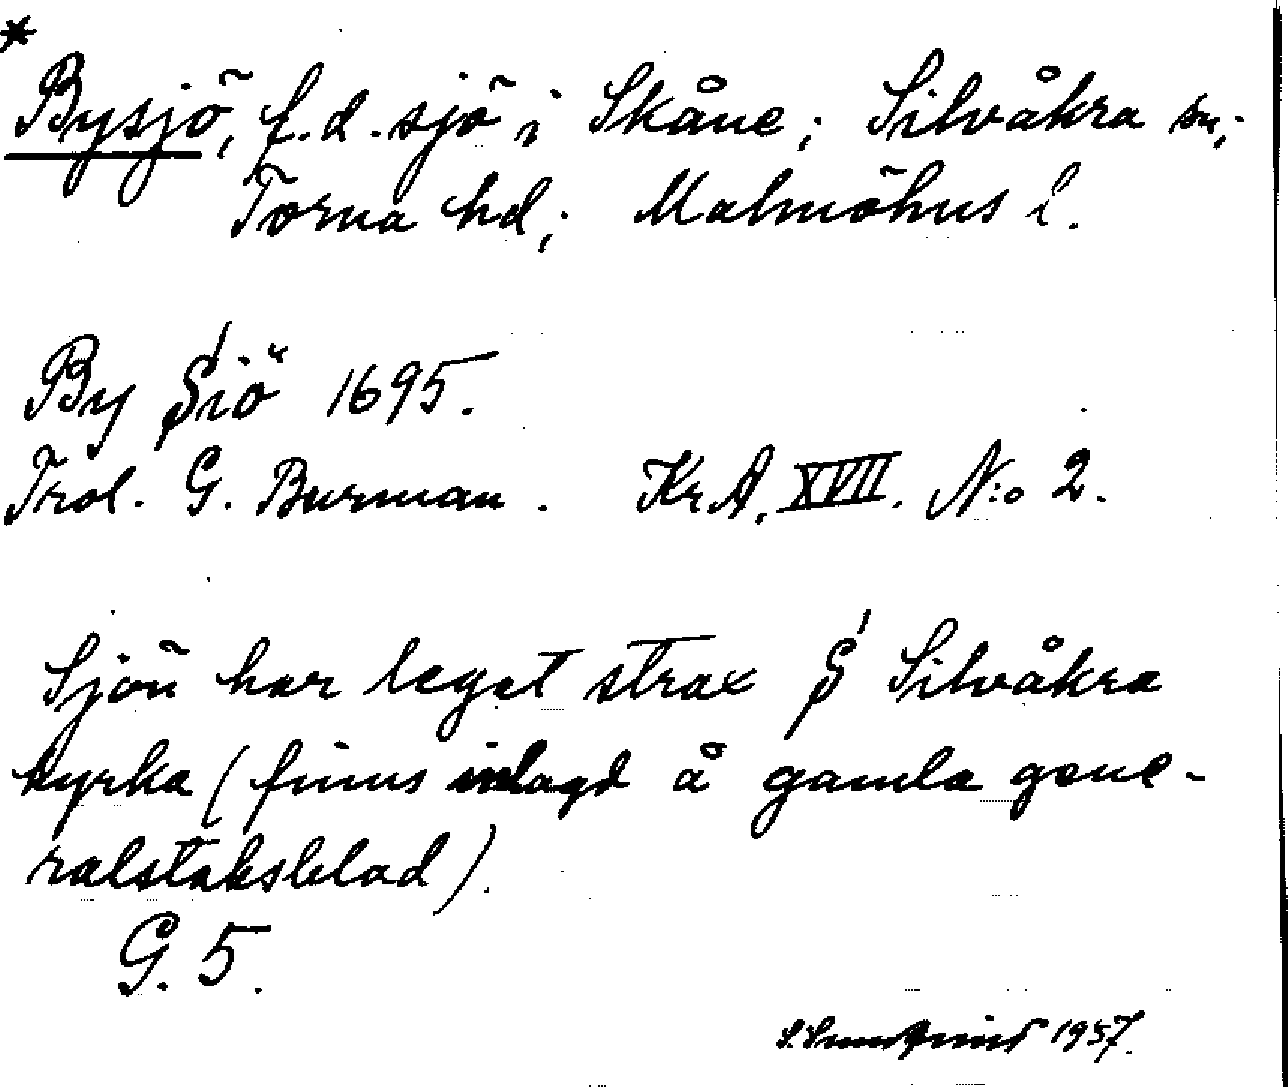 *
Bysjö, f.d. sjö i Skåne; Silvåkra sn,;
Torna hd,; Malmöhus l.
By Siö 1695.
Trol. G. Burman. KrA, XVII. N:o 2.
Sjön har legat strax S Silvåkra
kyrka (finns inlagd å gamla gene-
ralstabsblad).
G. 5.
S. Sundqvist 1957.